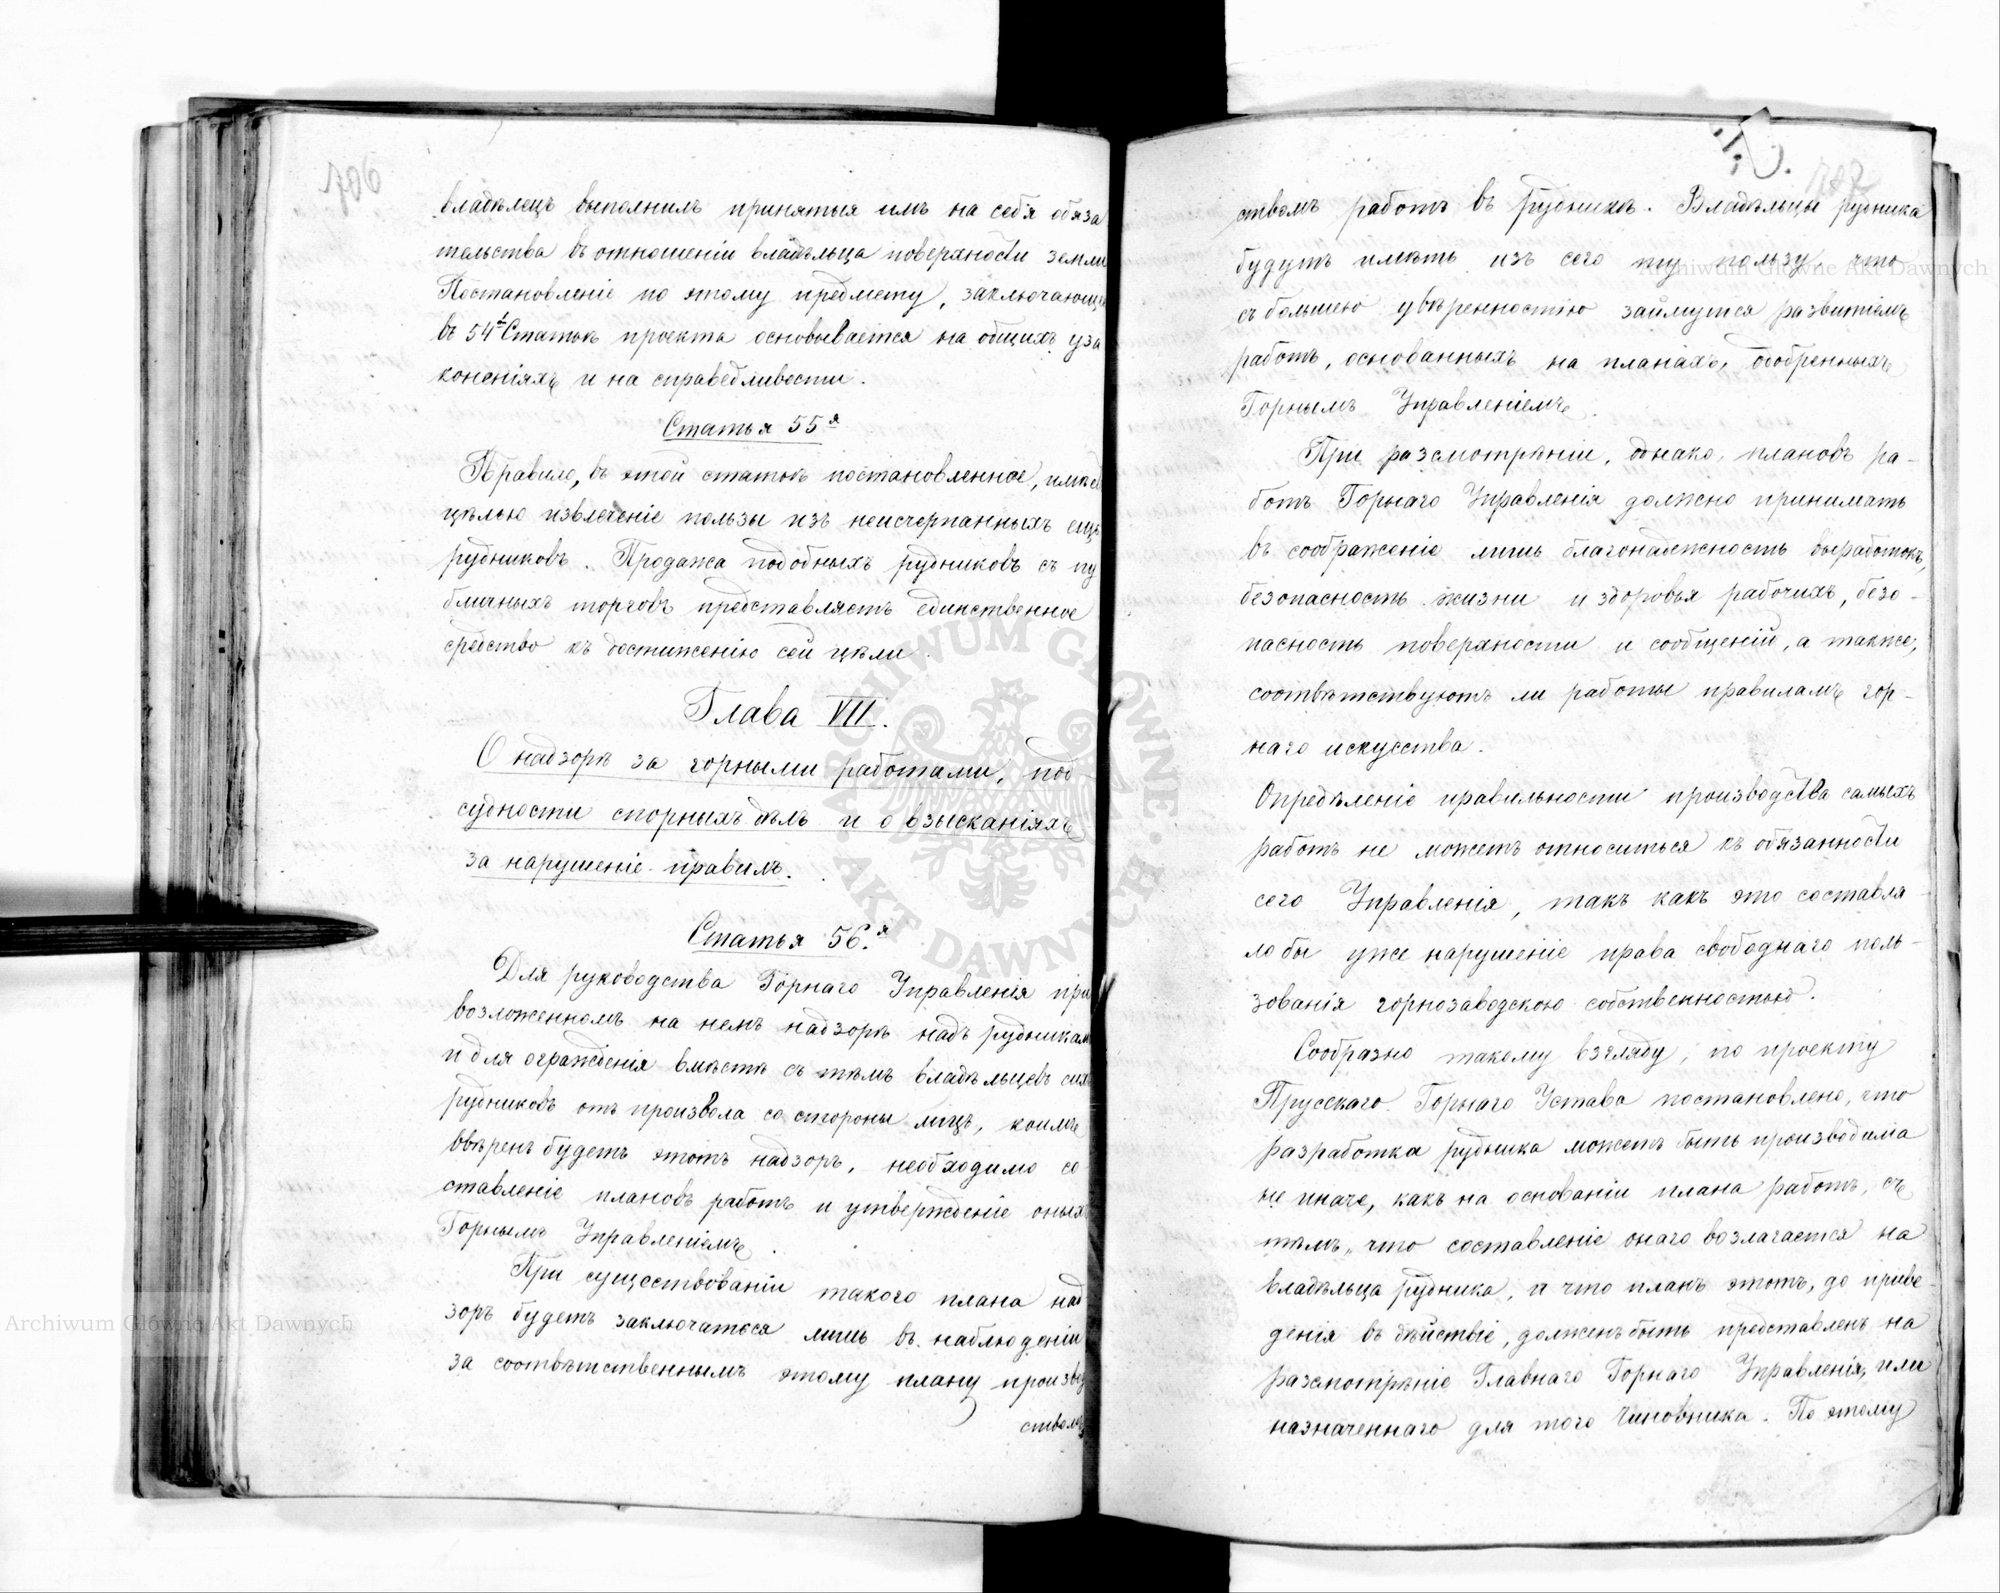 владѣлецъ выполнилъ принятыя имъ на себя обяза
тельства въ отношеніи владѣльца поверхности земли
Постановленіе по этому предмету, заключающе
въ 54й Статьѣ проекта основывается на общихъ уза
коненіяхъ и на справедливости.
Статья 55я
Правило, въ этой статьѣ постановленное, имѣе
цѣлью извлеченіе пользы изъ неисчерпанныхъ еще
рудниковъ. Продажа подобныхъ рудниковъ съ пу
бличныхъ торговъ представляетъ единственное
средство къ достиженію сей цѣли.
Глава VII.
О надзорѣ за горными работами, под-
судности спорныхъ дѣлъ и о взысканіяхъ
за нарушеніе правилъ.
Статья 56.я
Для руководства Горнаго Управленія при
возложенномъ на немъ надзорѣ надъ рудникам
и для огражденія вмѣстѣ съ тѣмъ владѣльцевъ сих
рудниковъ отъ произвола со стороны лицъ, коимъ
ввѣренъ будетъ этотъ надзоръ, необходимо со
ставленіе плановъ работъ и утвержденіе оныхъ
Горнымъ Управленіемъ.
При существованіи такого плана над
зоръ будетъ заключаться лишь въ наблюденіи
за соотвѣтственнымъ этому плану произвед
ствомъ
ствомъ работъ въ рудникѣ. Владѣльцы рудника
будутъ имѣть изъ сего ту пользу, что
съ большею увѣренностію займутся развитіемъ
работъ, основанныхъ на планахъ, одобренныхъ
Горнымъ Управленіемъ.
При разсмотрѣніи, однако, плановъ ра-
ботъ Горнаго Управленія должно принимать
въ соображеніе лишь благонадежность выработокъ,
безопасность жизни и здоровья рабочихъ, безо-
пасность поверхности и сообщеній, а также,
соотвѣтствуютъ ли работы правиламъ гор-
наго искусства.
Опредѣленіе правильности производства самыхъ
работъ не можетъ относиться къ обязанности
сего Управленія, такъ какъ это составля
ло бы уже нарушеніе права свободнаго поль-
зованія горнозаводскою собственностью.
Сообразно такому взгляду, по проекту
Прусскаго Горнаго Устава постановлено, что
разработка рудника можетъ быть производима
не иначе, какъ на основаніи плана работъ, съ
тѣмъ, что составленіе онаго возлагается на
владѣльца рудника, и что планъ этотъ, до приве-
денія въ дѣйствіе, долженъ быть представленъ на
разсмотрѣніе Главнаго Горнаго Управленія, или
назначеннаго для того Чиновника. По этому
ARCHIWUM GŁÓWNE AKT DAWNYCH
Archiwum Główne Akt Dawnych
Archiwum Główne Akt Dawnych